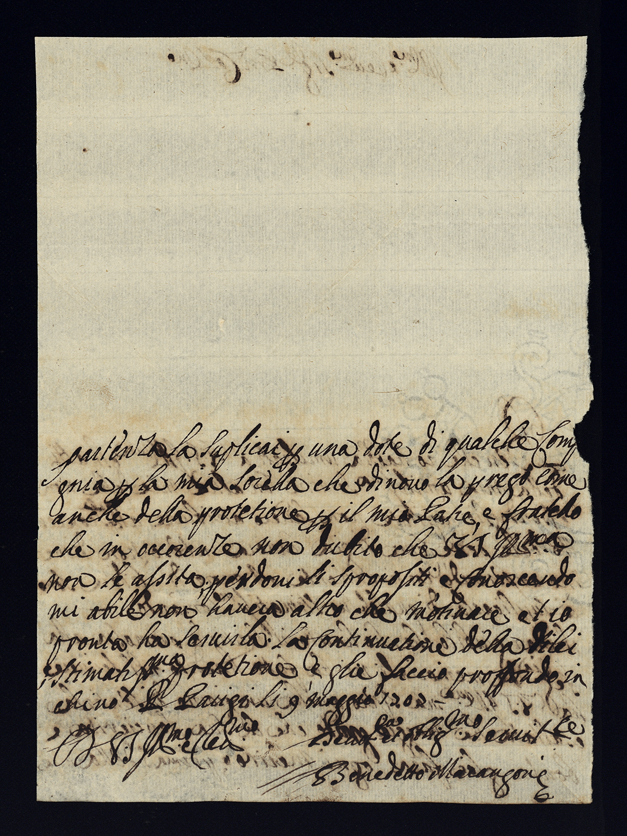 partenza la suplicai p una dote di qualche Comp
gnia p la mia sorella che di nuovo la prego Come
anche della protetione p il mio Padre, e fratello
che in occorenze non dubito che V.S. Ill.ma
non le assista, perdoni li spropositi e conoscendo
mi abile non haverà altro che motivare et io
pronto ha servirla la Continuatione della di lei
stimatis.ma protetione e glie faccio proffondo in
chino Rovigo li 9 maggio 170
Di V.S. Ill.ma Servit.re
Benedetto Marangoni